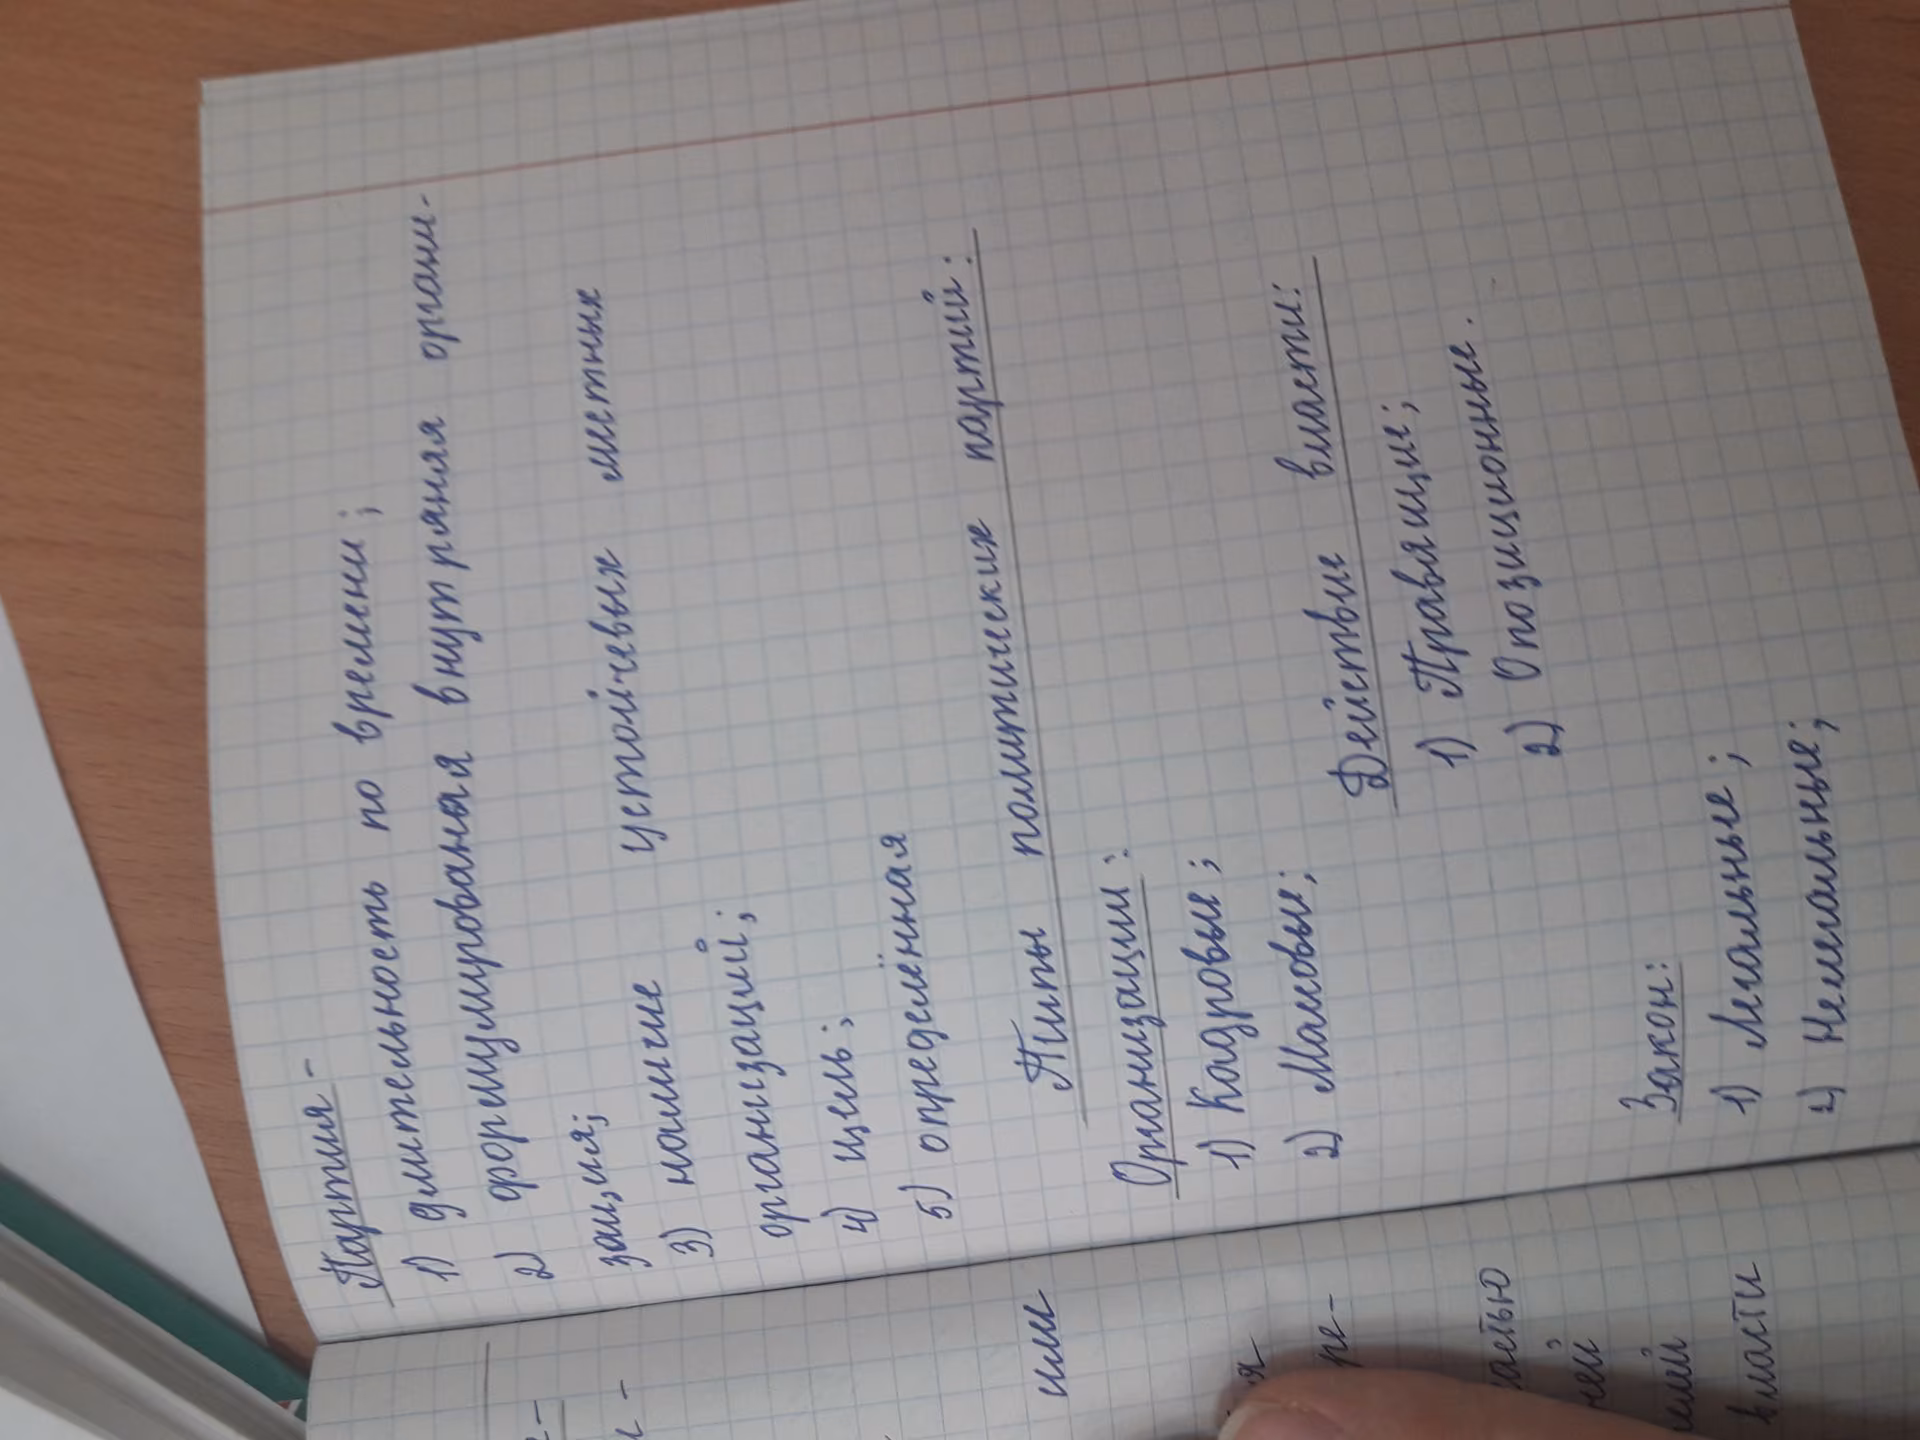 Партия -
1) длительность по времени;
2) формулированая внутряняя органи-
зация;
3) наличие устойчевых местных
организаций;
4) цель;
5) определённая
Типы политических партий:
Организации:
1) Кадровые;
2) Массовые;
Действие власти:
1) Правящие;
2) Опозиционные.
Закон:
1) Легальные;
2) Нелегальные;
ии
ре-
ней
власти